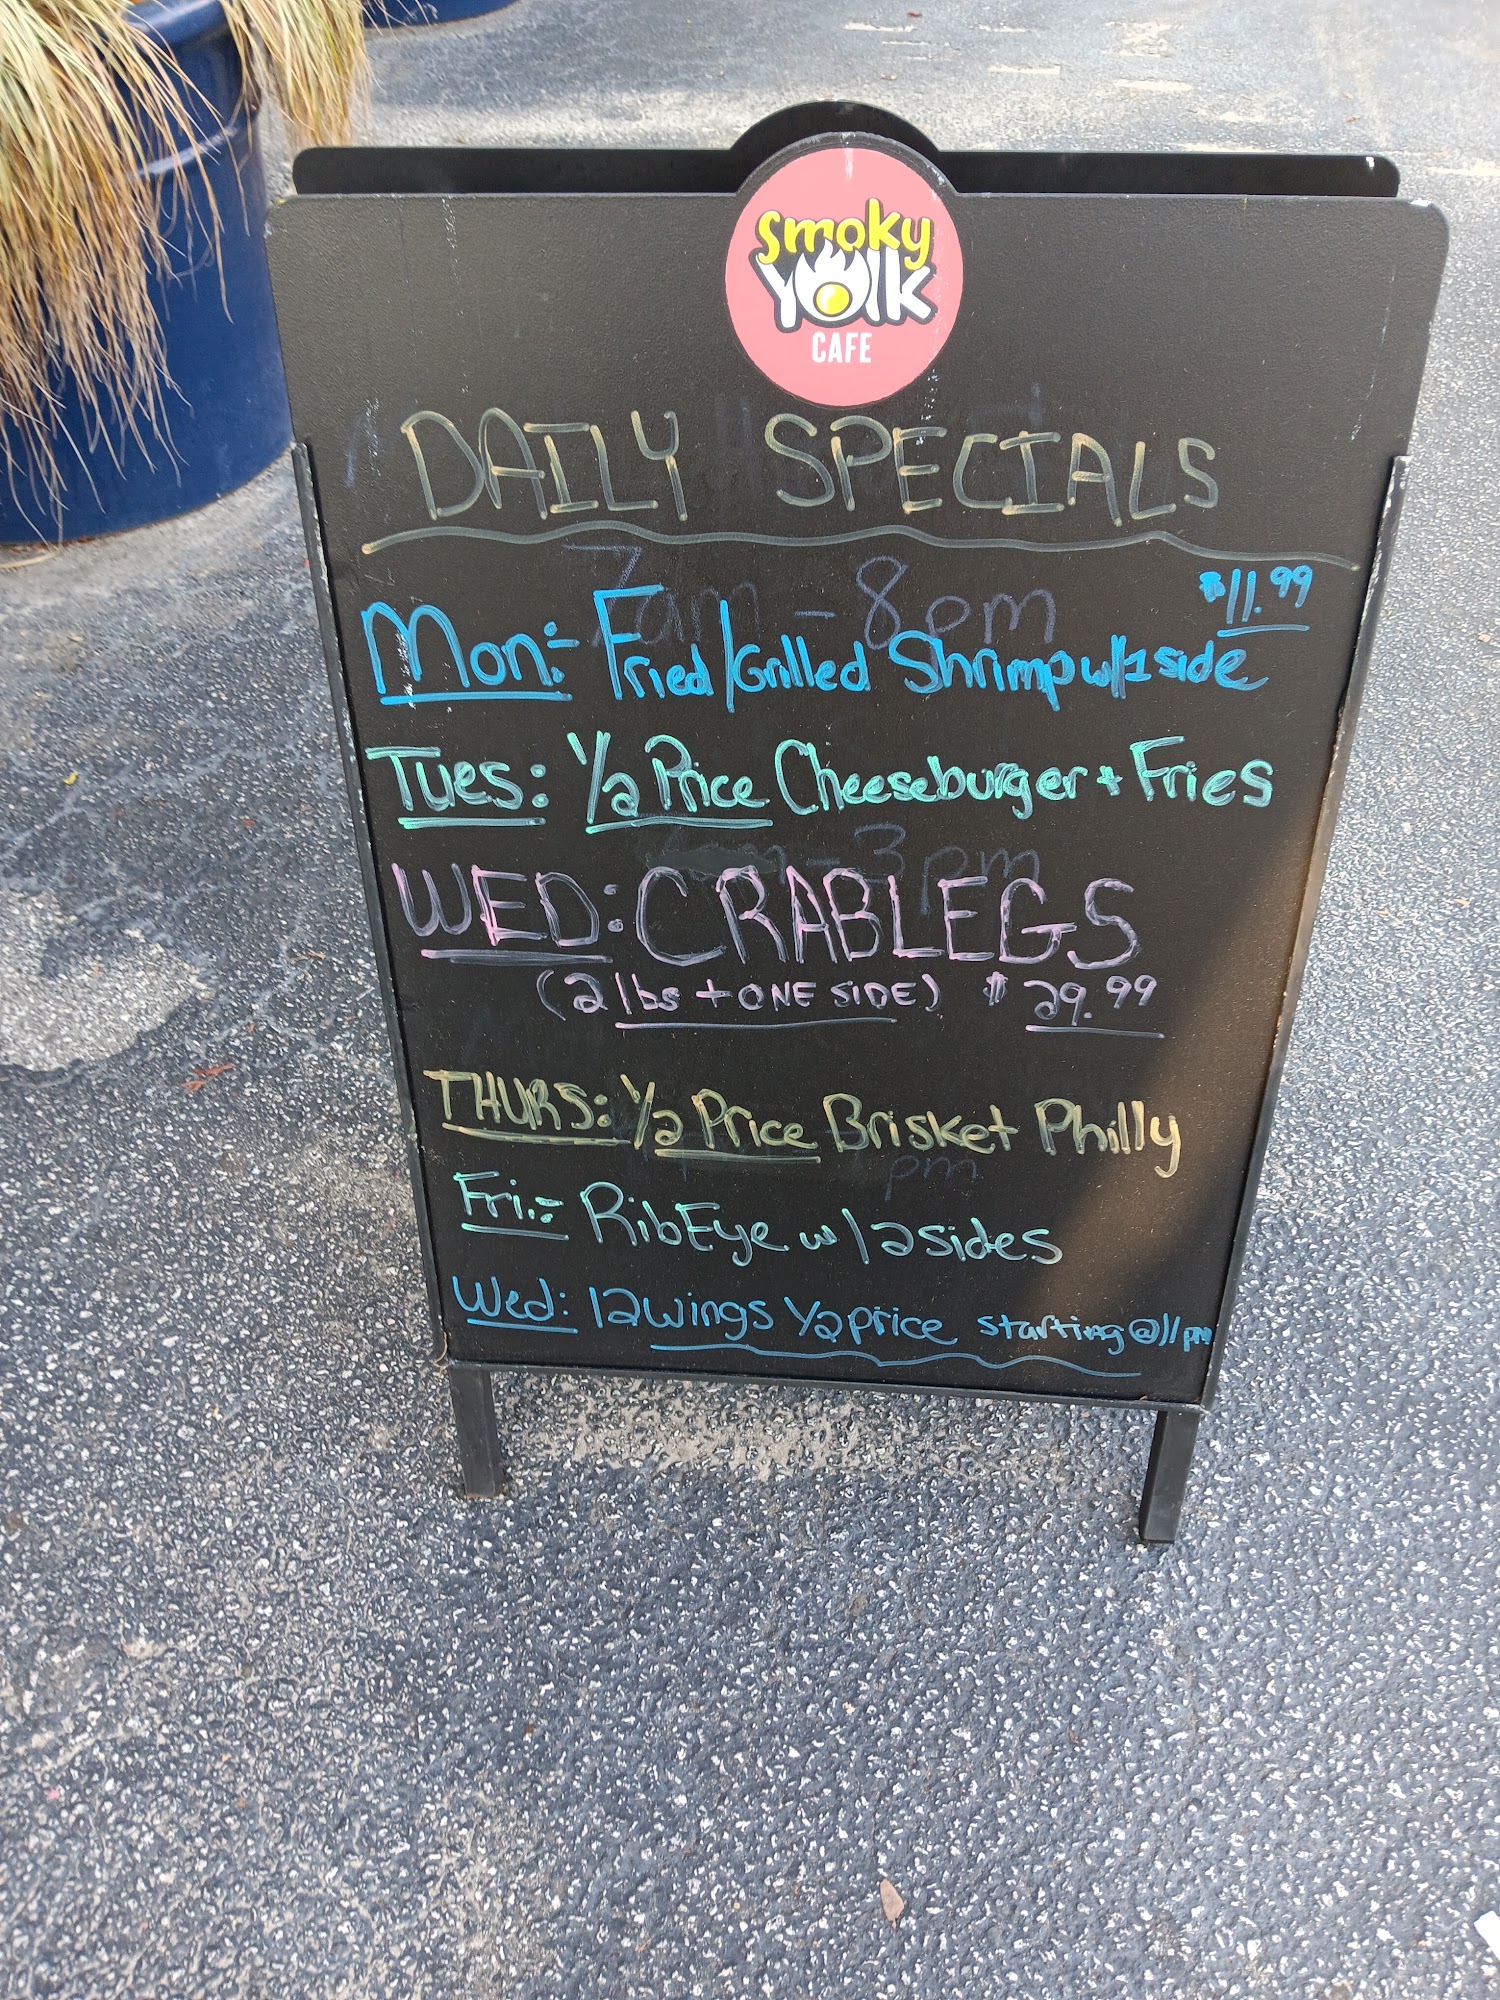 smoky
YOlk
CAFE
DAILY SPECIALS
7am - 8pm
$11.99
Mon:- Fried/Grilled Shrimp w/1 side
Tues: 1/2 Price Cheeseburger + Fries
- 3pm
WED: CRABLEGS
(2 lbs + ONE SIDE) $ 29.99
THURS: 1/2 Price Brisket Philly
pm
Fri:- RibEye w/2sides
Wed: 12wings 1/2 price starting @11pm